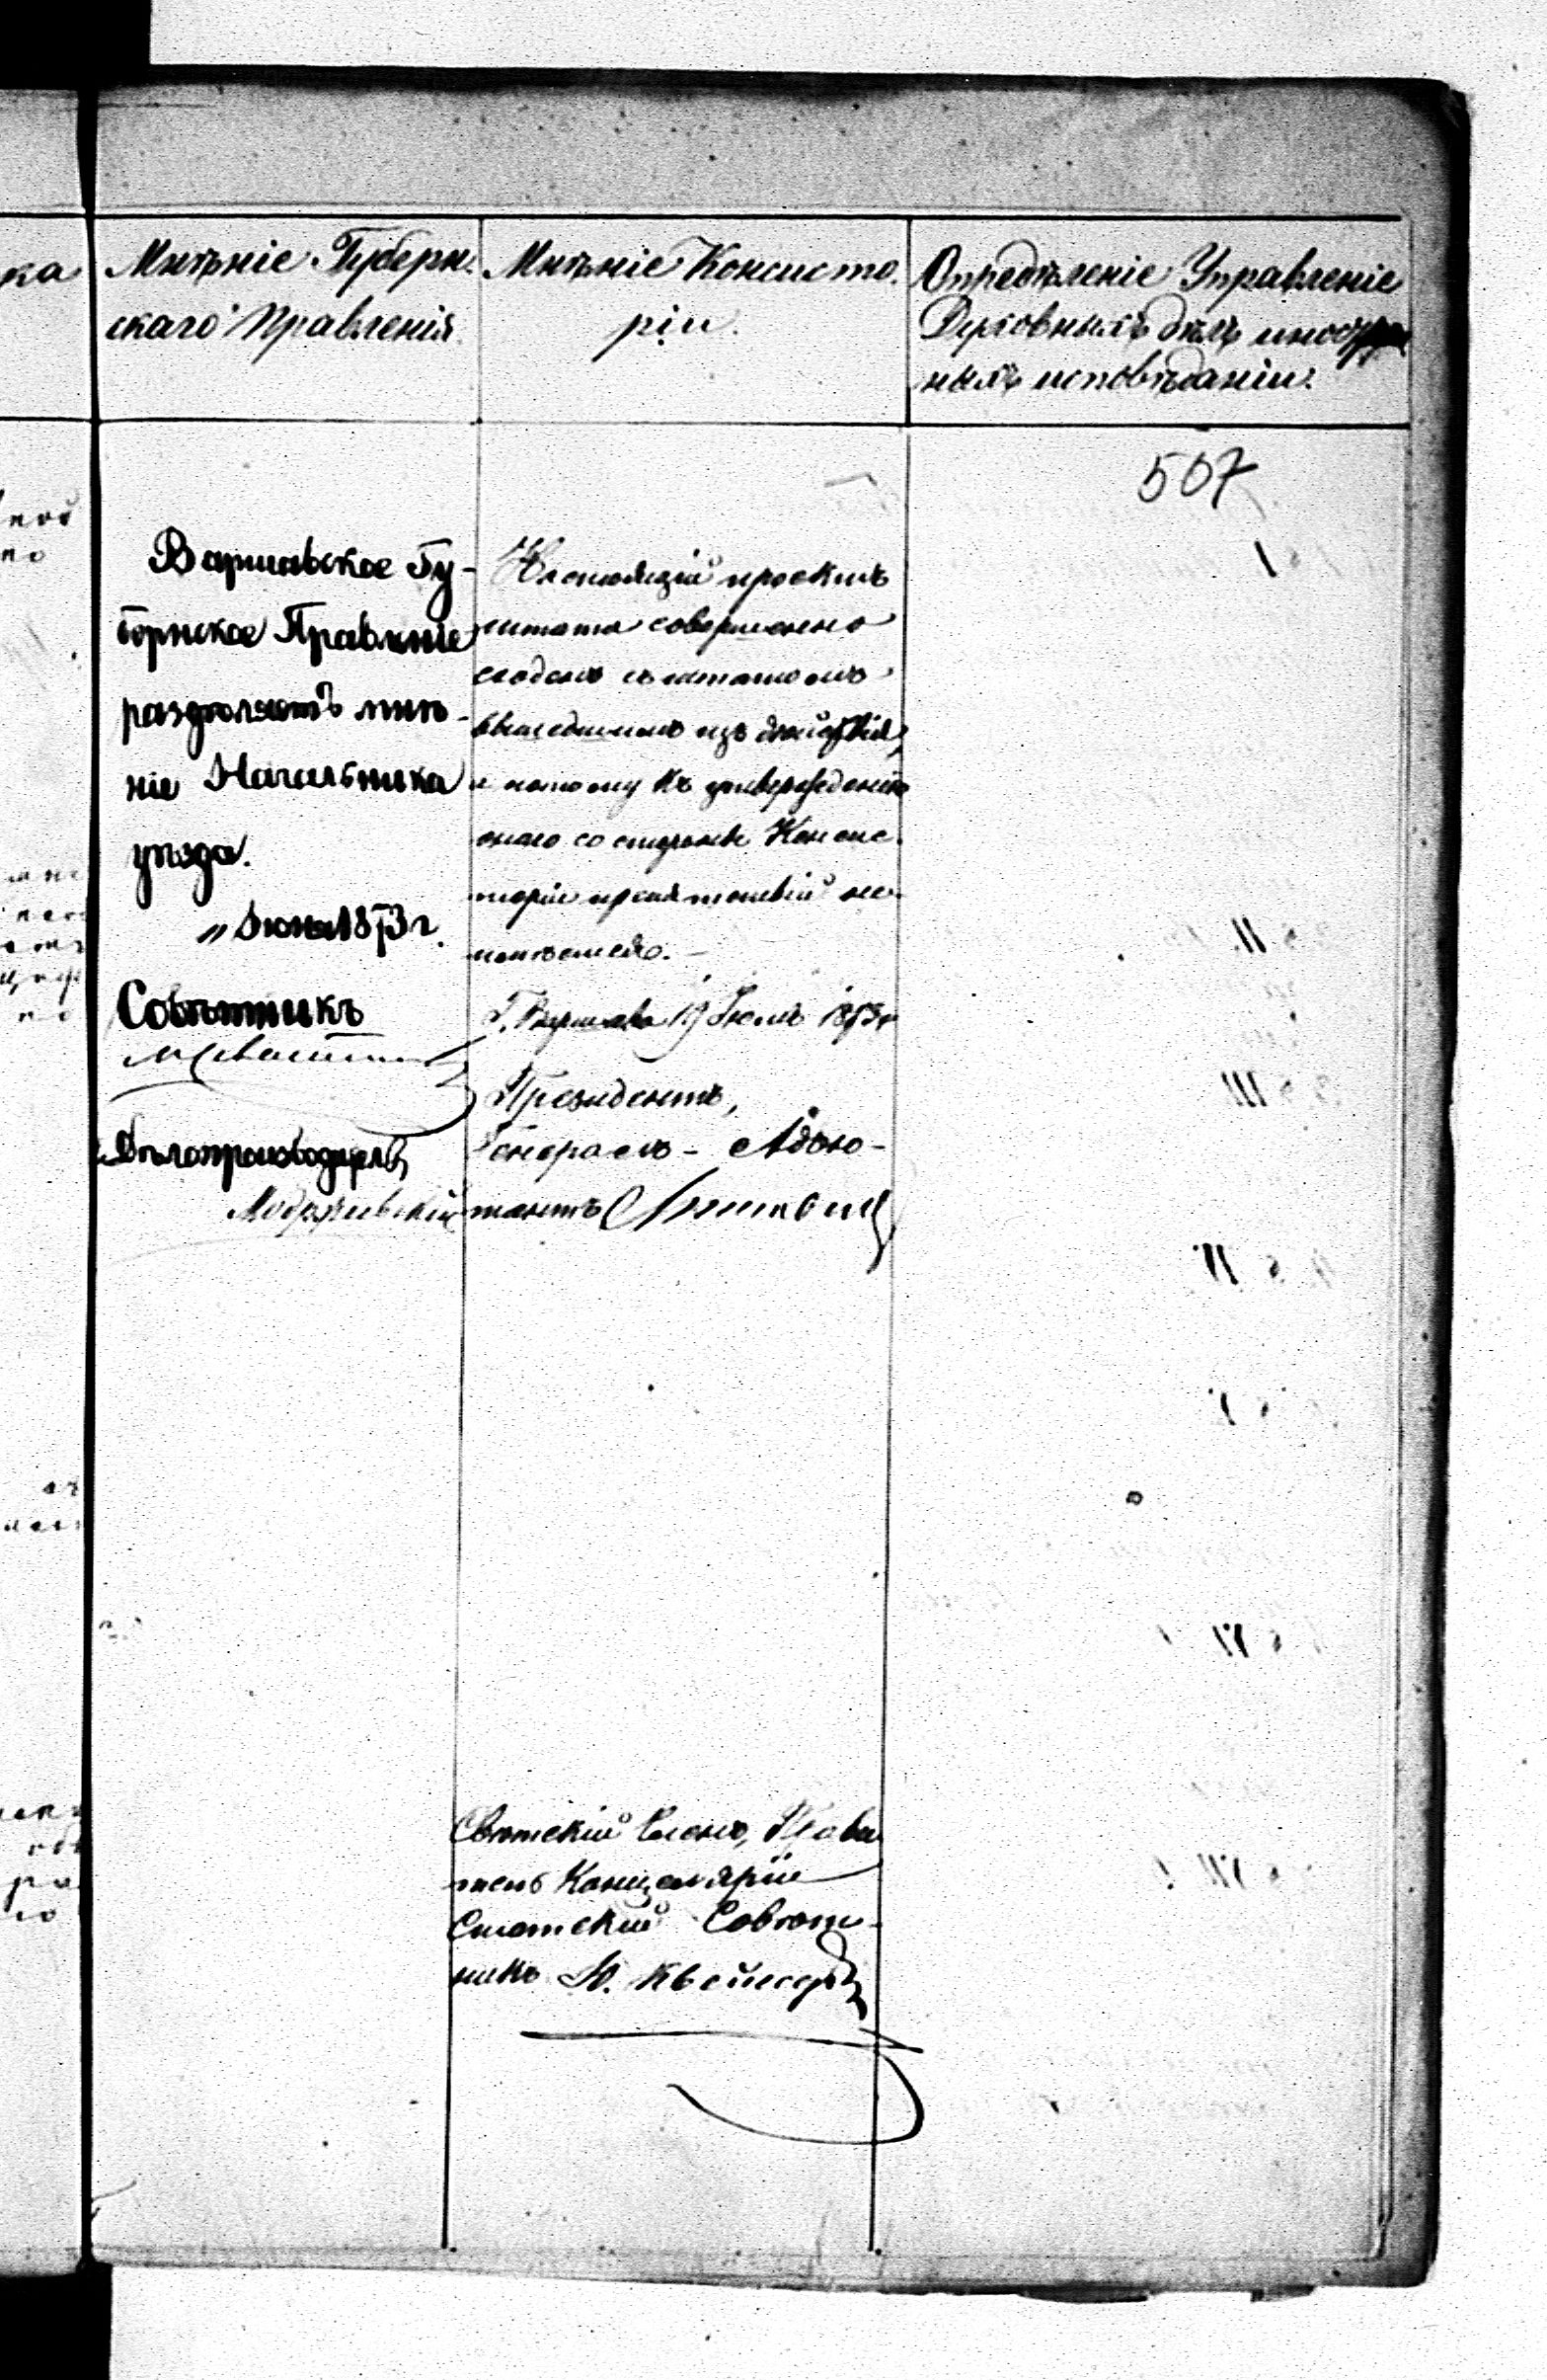 Мнѣніе Губерн.
скаго Правленія.
Мнѣніе Консисто.
ріи.
Опредѣленіе Управленіе
Духовныхъ дѣлъ иностран
ныхъ исповѣданіи.
507
Варшавское Гу-
бернское Правленіе
раздѣляетъ мнѣ-
ніе Начальника
уѣзда.
" Іюня 1873 г.
Совѣтникъ
Дѣлопроизводитель
Модржевскій
Настоящій проектъ
штата совершенно
сходенъ съ штатомъ
вышедшимъ изъ дѣйствія,
и потому къ утвержденію
онаго со стороны Консис.
торіи препятствій не
имѣется.-
Г. Варшава 19 Іюля 1873 г
Президентъ,
Генералъ-Адъю-
тантъ
Свѣтскій Членъ, Прави
тель Канцеляріи
Статскій Совѣт-
никъ